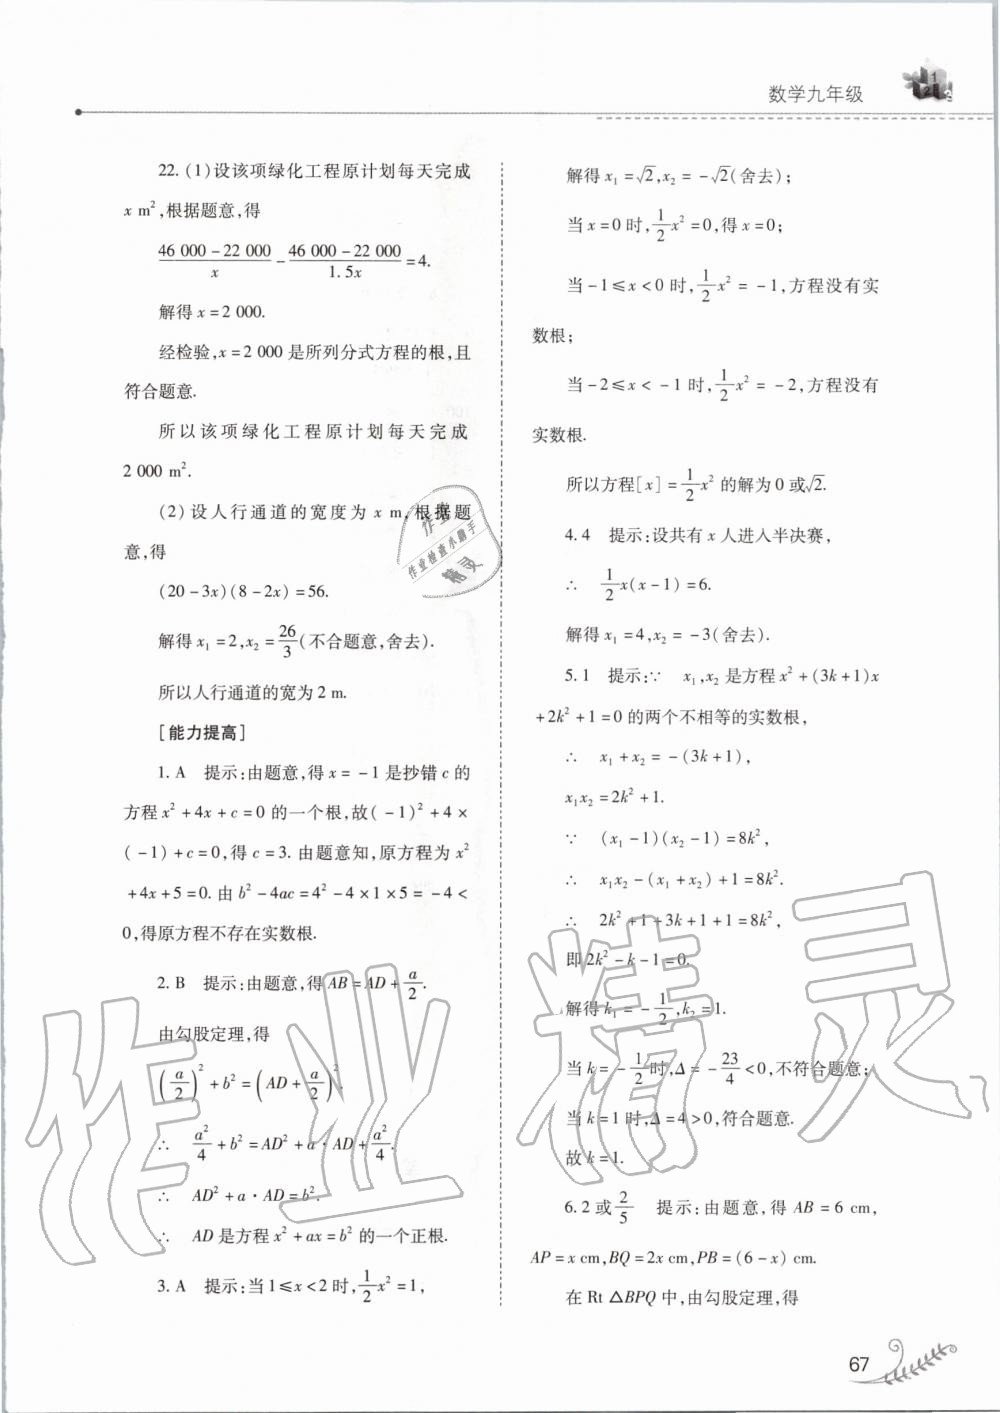 数学九年级
22.(1)设该项绿化工程原计划每天完成
x m²,根据题意,得
(46 000-22 000)/x - (46 000-22 000)/(1.5x) =4.
解得 x=2 000.
经检验,x=2 000 是所列分式方程的根,且
符合题意.
所以该项绿化工程原计划每天完成
2 000 m².
(2)设人行通道的宽度为 x m,根据题
意,得
(20-3x)(8-2x)=56.
解得 x₁=2,x₂=26/3(不合题意,舍去).
所以人行通道的宽为 2 m.
[能力提高]
1. A 提示:由题意,得 x=-1 是抄错 c 的
方程 x²+4x+c=0 的一个根,故(-1)²+4×
(-1)+c=0,得 c=3. 由题意知,原方程为 x²
+4x+5=0. 由 b²-4ac=4²-4×1×5=-4<
0,得原方程不存在实数根.
2. B 提示:由题意,得 AB=AD+a/2.
由勾股定理,得
(a/2)²+b²=(AD+a/2)².
∴ a²/4+b²=AD²+a·AD+a²/4.
∴ AD²+a·AD=b².
∴ AD 是方程 x²+ax=b² 的一个正根.
3. A 提示:当 1≤x<2 时,1/2x²=1,
解得 x₁=√2,x₂=-√2(舍去);
当 x=0 时,1/2x²=0,得 x=0;
当-1≤x<0 时,1/2x²=-1,方程没有实
数根;
当-2≤x<-1 时,1/2x²=-2,方程没有
实数根.
所以方程[x]=1/2x² 的解为 0 或√2.
4. 4 提示:设共有 x 人进入半决赛,
∴ 1/2x(x-1)=6.
解得 x₁=4,x₂=-3(舍去).
5. 1 提示:∵ x₁,x₂ 是方程 x²+(3k+1)x
+2k²+1=0 的两个不相等的实数根,
∴ x₁+x₂=-(3k+1),
x₁x₂=2k²+1.
∵ (x₁-1)(x₂-1)=8k²,
∴ x₁x₂-(x₁+x₂)+1=8k².
∴ 2k²+1+3k+1+1=8k²,
即 2k²-k-1=0.
解得 k₁=-1/2,k₂=1.
当 k=-1/2时,Δ=-23/4<0,不符合题意;
当 k=1 时,Δ=4>0,符合题意.
故 k=1.
6. 2 或2/5 提示:由题意,得 AB=6 cm,
AP=x cm,BQ=2x cm,PB=(6-x) cm.
在 Rt △BPQ 中,由勾股定理,得
67
作业
作业检查小助手
精灵
作业精灵